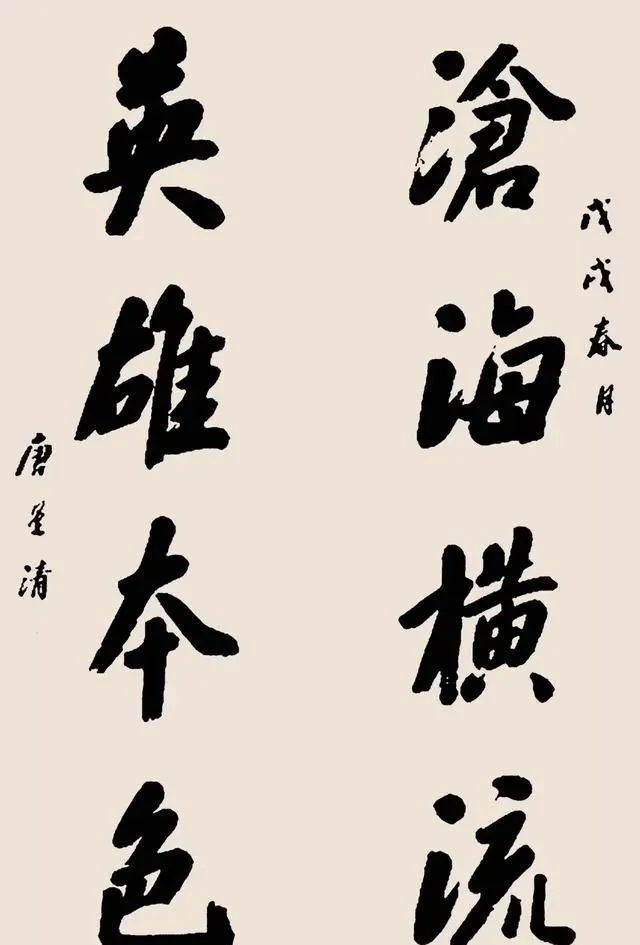 戊戌春月
滄海橫流
英雄本色
唐星清